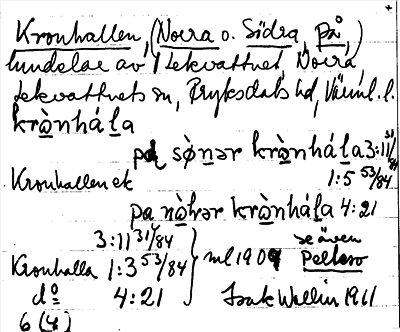 Kronhallen, (Norra o. Södra, på,)
lundelar av Lekvattnet Norra,
Lekvattnets sn, Fryksdals hd, Värml. l.
krònhála
pa sǿnər krònhála 3:11 31/84
Kronhallen ek 1:5 53/84
pa nòhər krònhála 4:21
3:11 31/84
Kronhalla 1:3 53/84 } ml 1909 se även Pellaso
do 4:21 Isak Wallin 1911
6 (4)